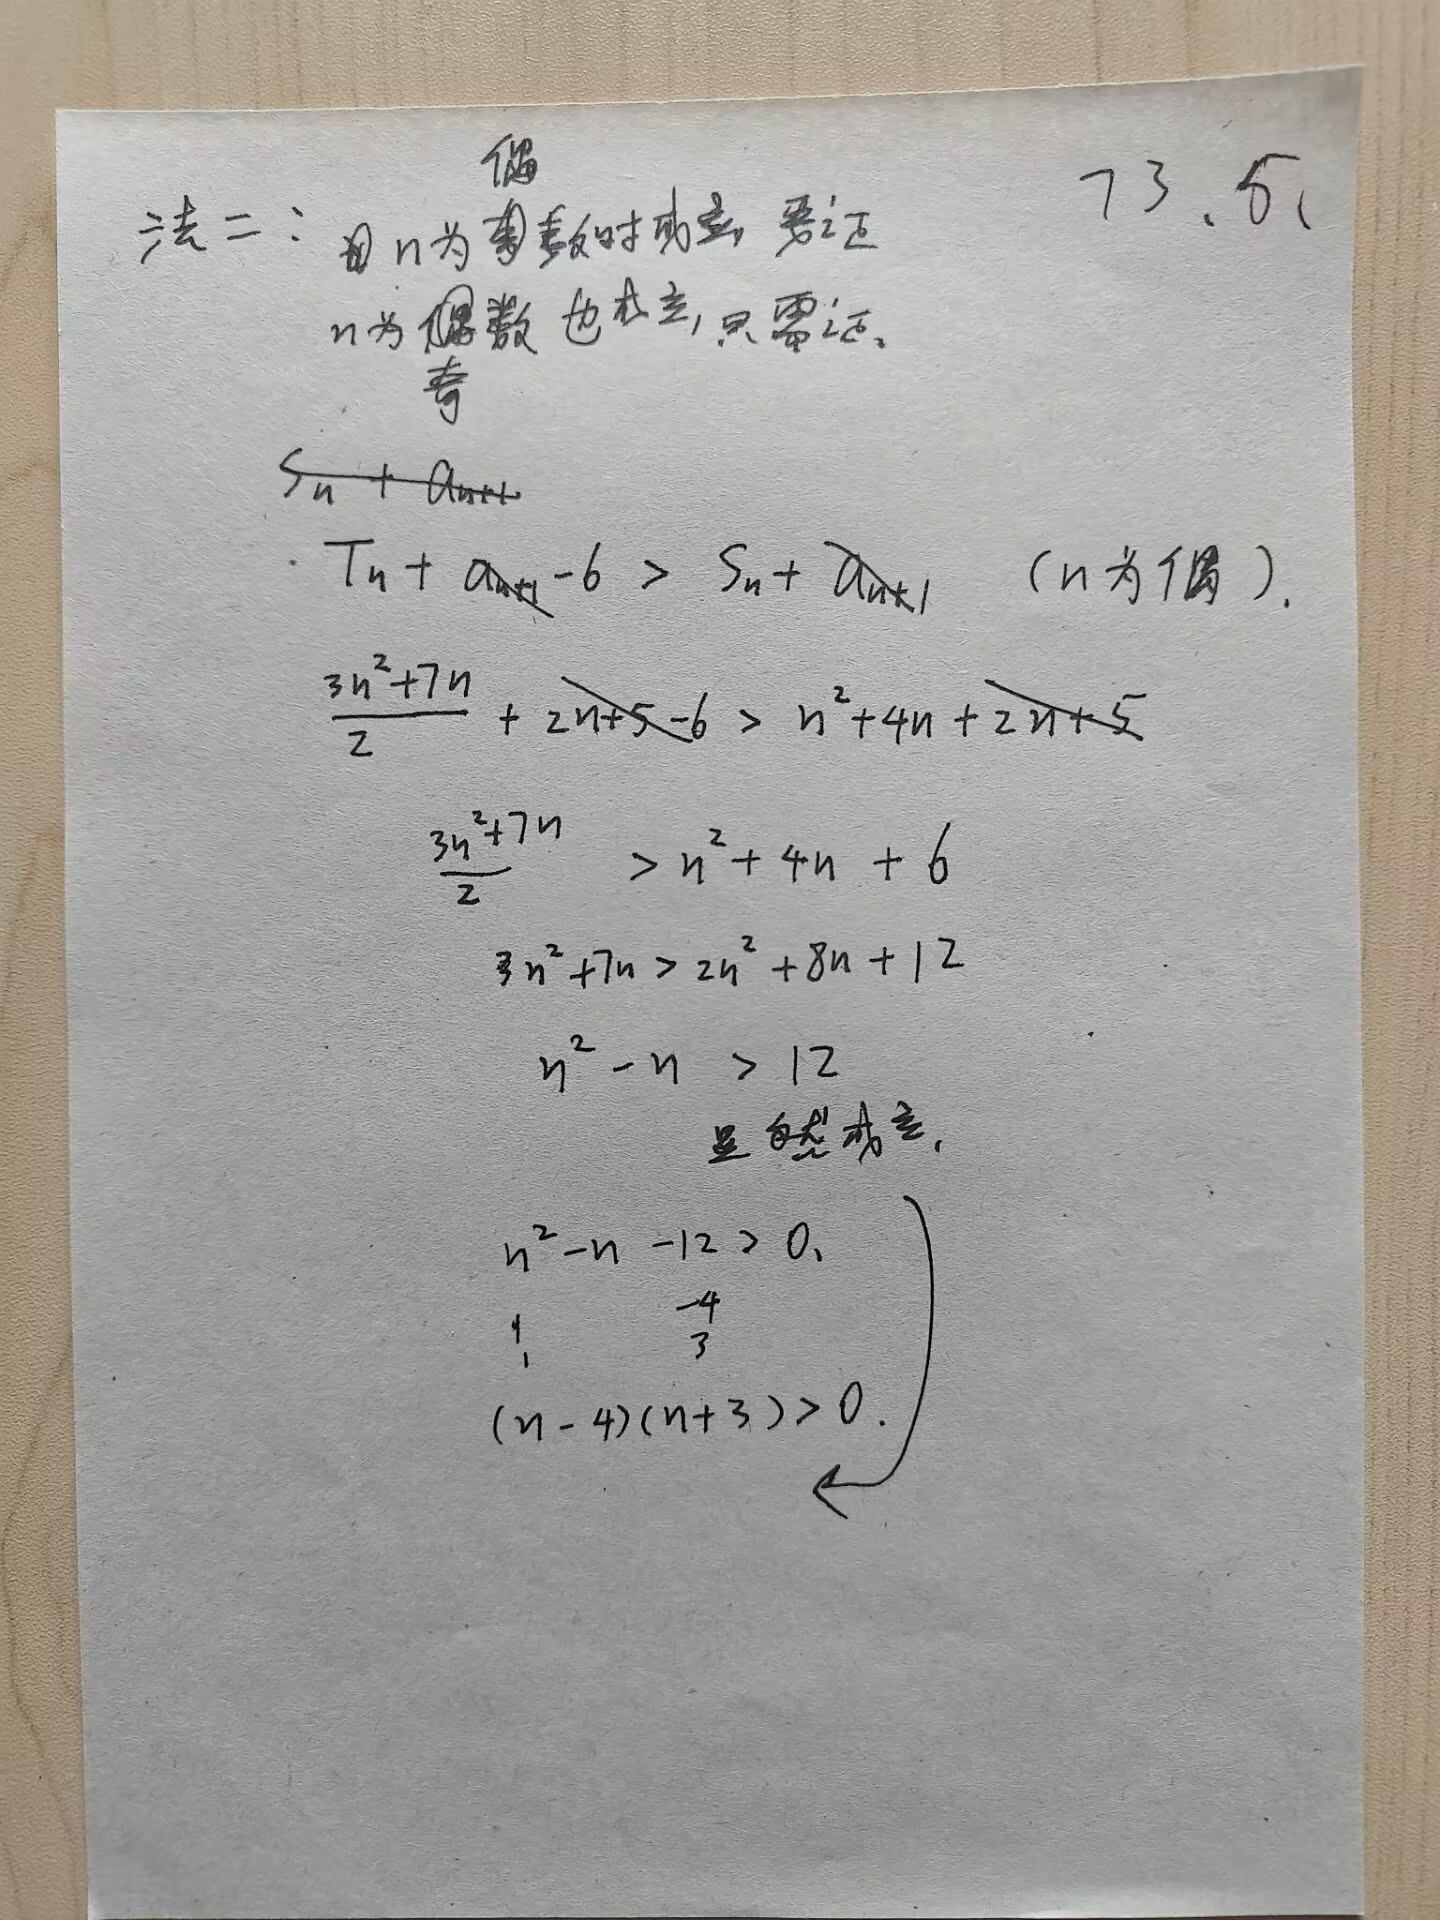 73.5.
偶
法二: 由n为奇数时成立,要证
n为偶数也成立,只需证.
奇
Sn + an+1
Tn + an+1 -6 > Sn + an+1 (n为偶).
(3n²+7n)/2 + 2n+5-6 > n²+4n+2n+5
(3n²+7n)/2 > n²+4n+6
3n²+7n > 2n²+8n+12
n²-n > 12
显然成立.
n²-n-12>0.
1 -4
1 3
(n-4)(n+3)>0.